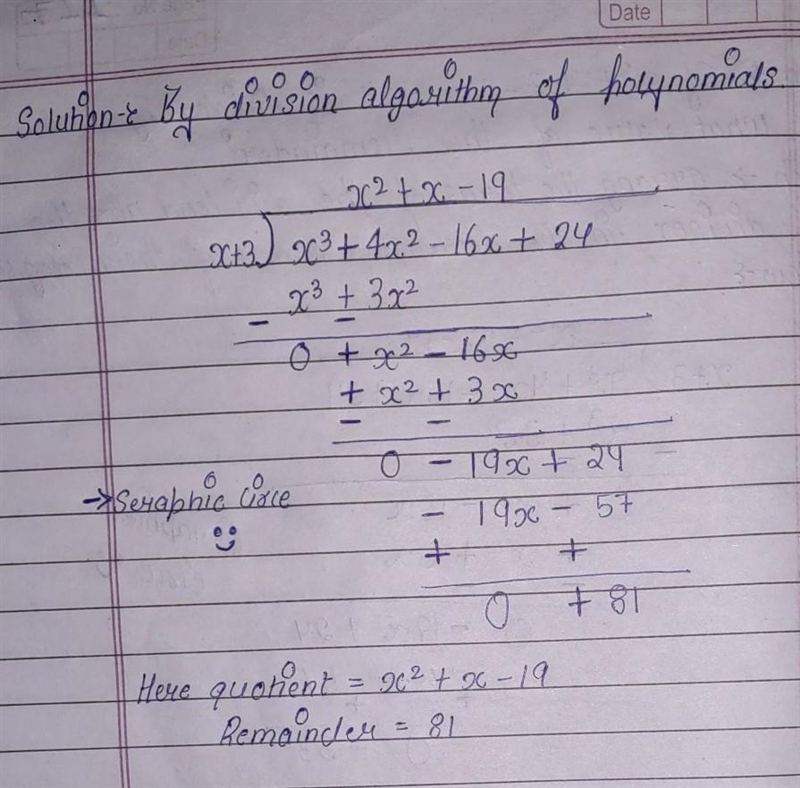 Date
Solution-: By division algorithm of polynomials.
x² + x - 19
x+3) x³ + 4x² - 16x + 24
x³ + 3x²
- -
0 + x² - 16x
+ x² + 3x
- -
0 - 19x + 24
→ Seraphic
- 19x - 57
+ +
0 + 81
Here quotient = x² + x - 19
Remainder = 81